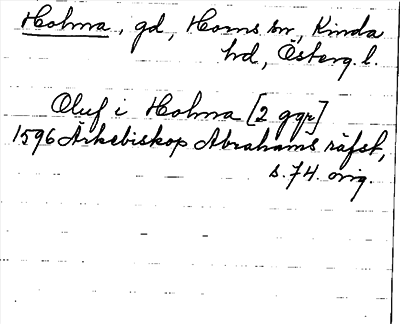 Holma, gd, Horns sn, Kinda
hd, Österg. l.
Oluf i Holma [2 ggr]
1596 Ärkebiskop Abrahams räfst,
s. 74. orig.